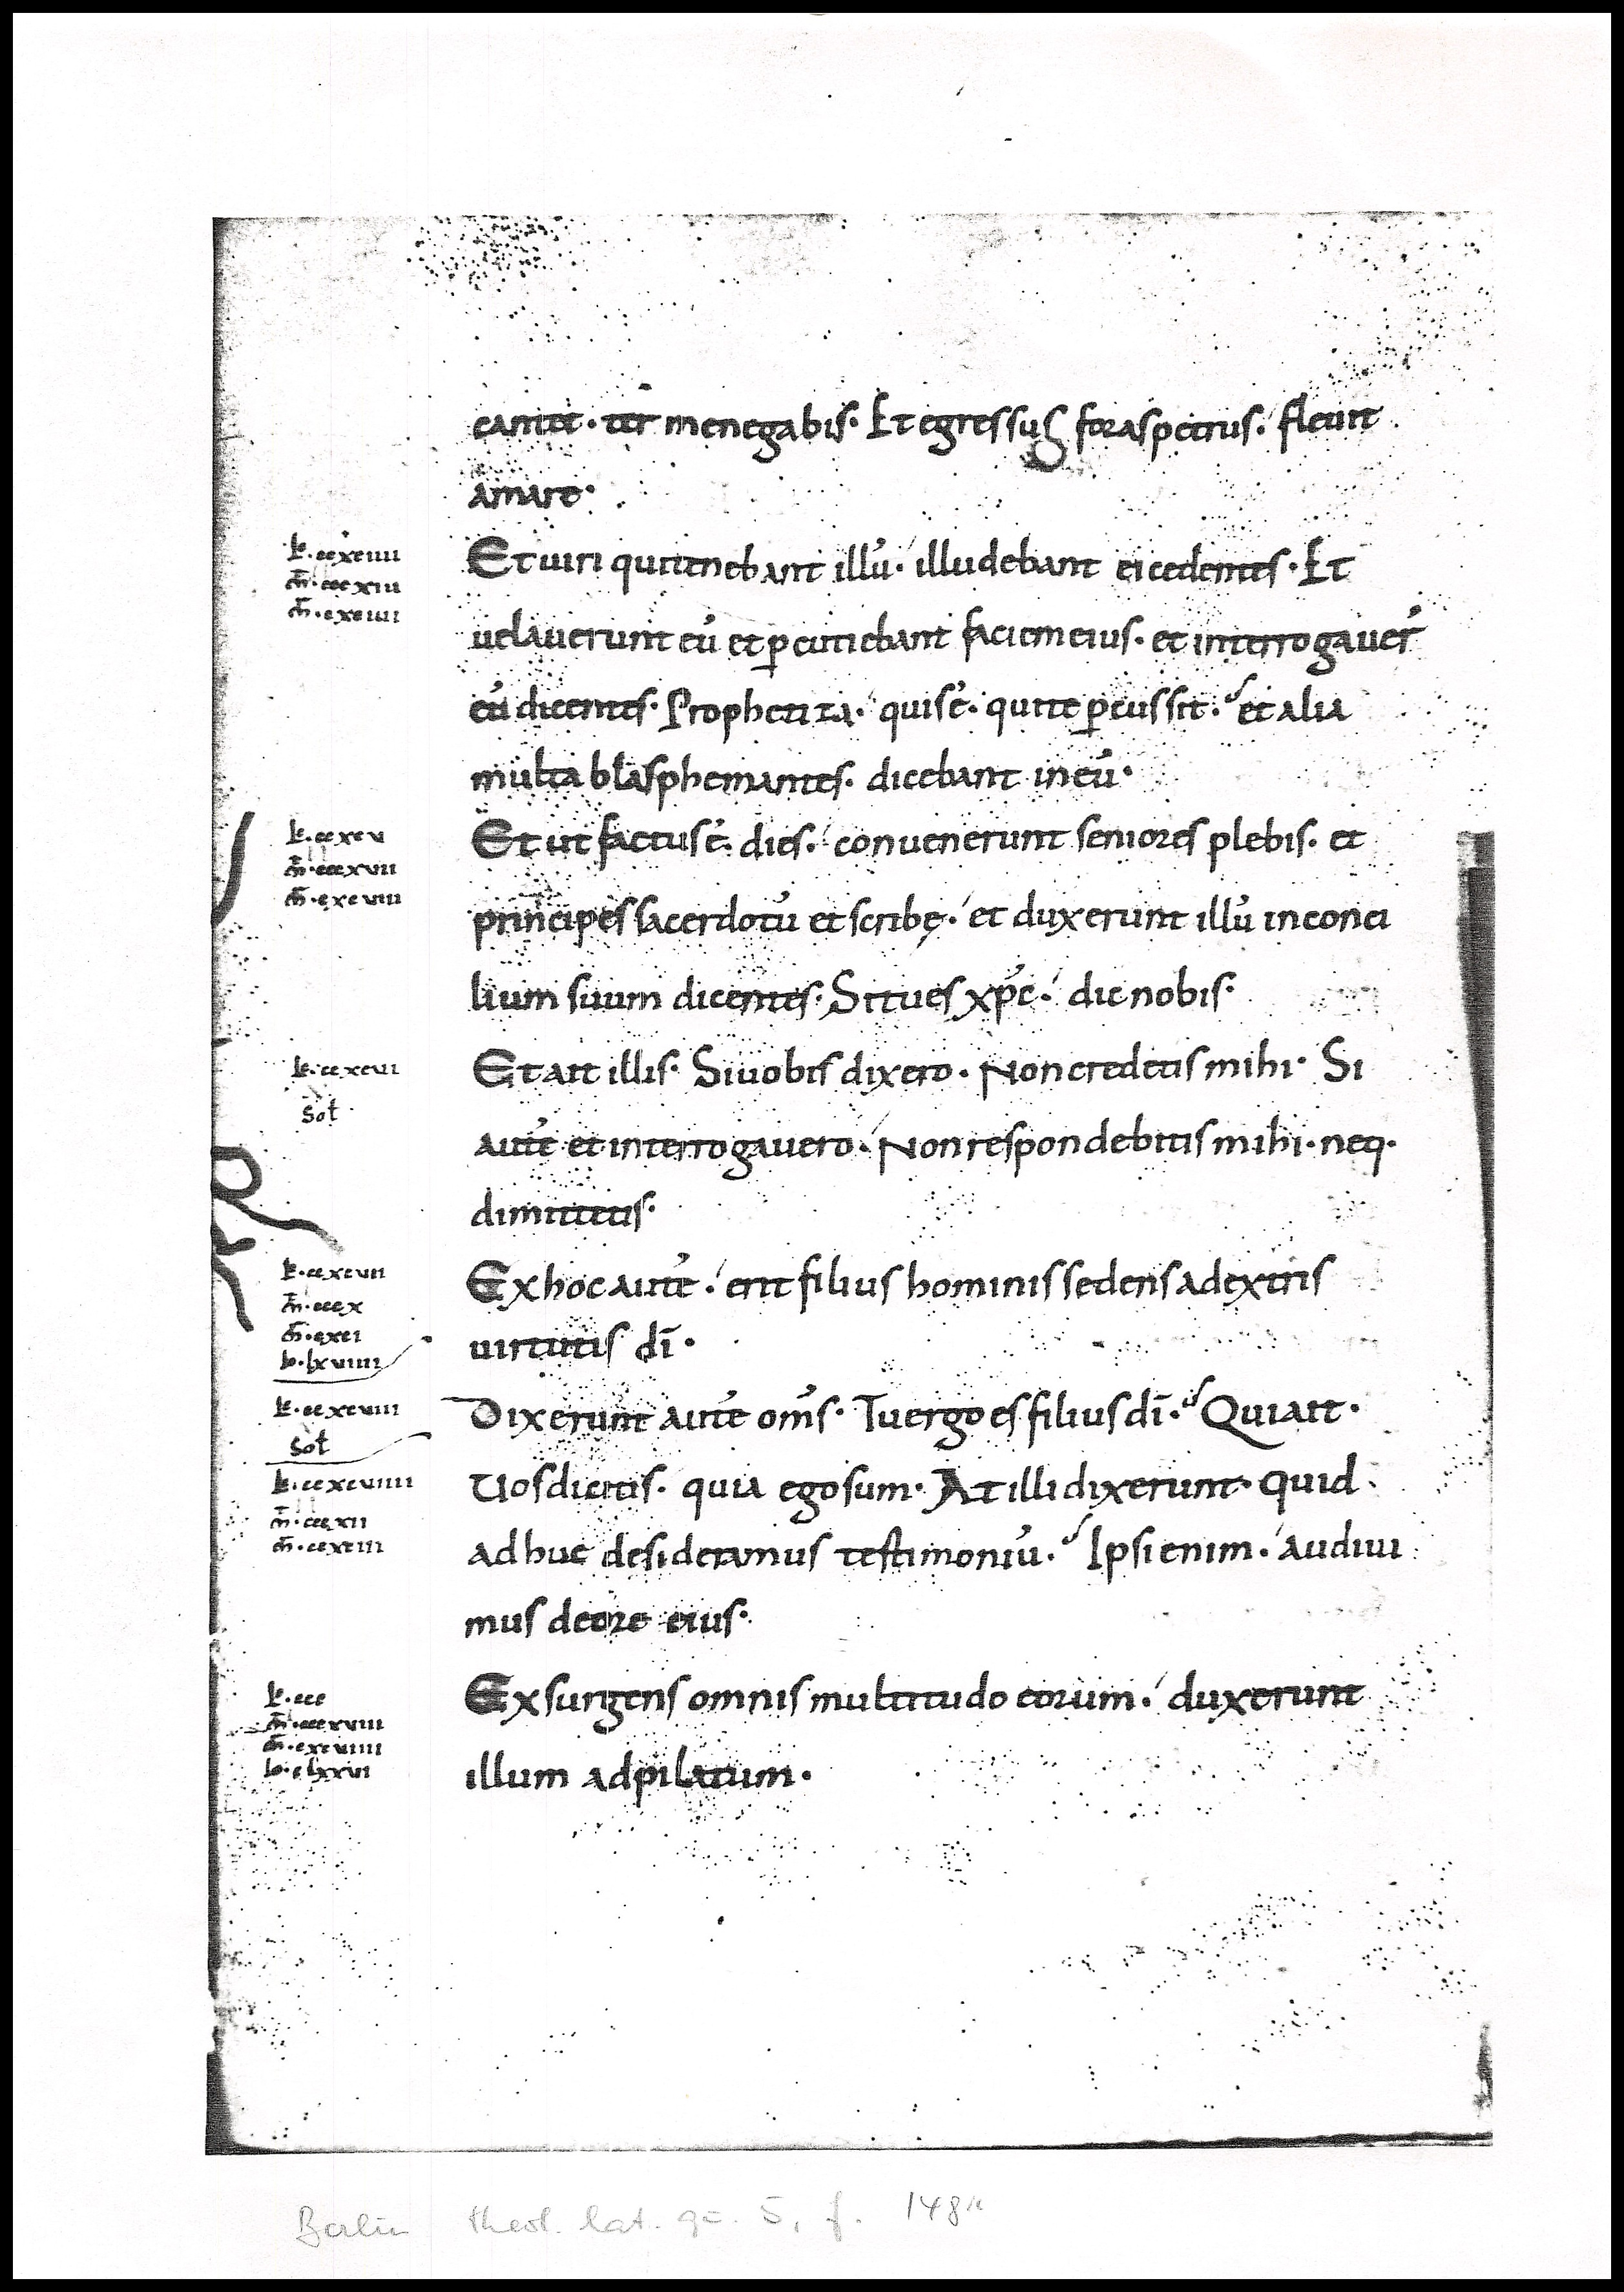 cantet · ter menegabis · Et egressus foras petrus · fleuit
amare ·
Et uiri qui tenebant illū · illudebant ei cedentes · Et
uelauerunt eū et ꝑcutiebant faciem eius · et interrogauer̄
eū dicentes · Prophetiza · quis ē · qui te ꝑcussit · et alia
multa blasphemantes · dicebant in eū ·
Et ut factus ē dies · conuenerunt seniores plebis · et
principes sacerdotū et scribę · et duxerunt illū in conci
lium suum dicentes · Si tu es xp̄c · dic nobis ·
Et ait illis · Si uobis dixero · Non credetis mihi · Si
autē et interrogauero · Non respondebitis mihi · neq·
dimittetis ·
Ex hoc autē · erit filius hominis sedens adextris
uirtutis dī ·
Dixerunt autē om̄s · Tu ergo es filius dī · Qui ait ·
Uos dicitis · quia ego sum · At illi dixerunt · quid
ad huc desideramus testimoniū · Ipsi enim · audiui
mus de ore eius ·
Exsurgens omnis multitudo eorum · duxerunt
illum ad pilatum ·
L · ccxciiii
L · ccxcv
L · ccxcvi
Sol
L · ccxcvii
m̄ · cccx
L · ccxcviii
sol
L · ccxcviiii
L · ccc
Berlin theol. lat. qu. 5, f. 148